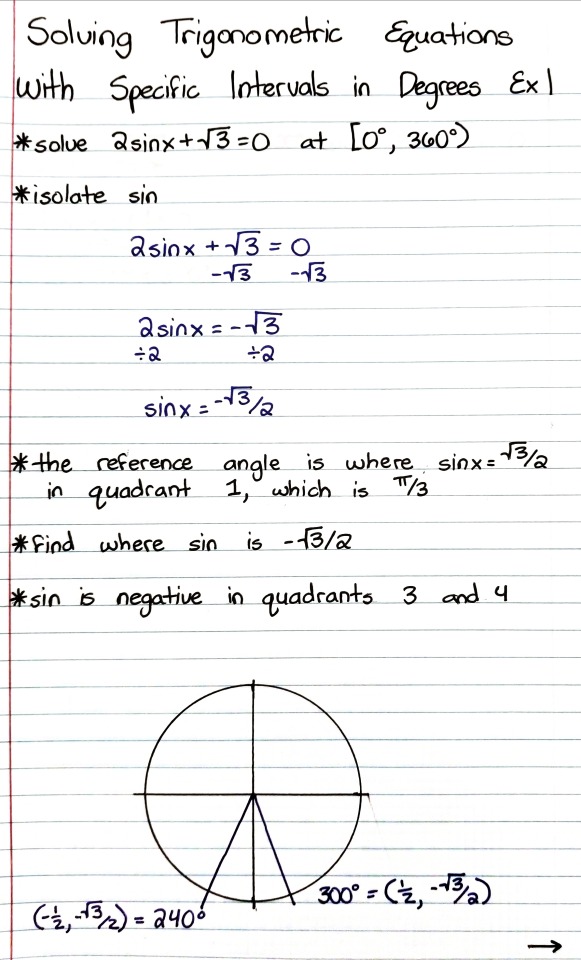 Solving Trigonometric Equations
With Specific Intervals in Degrees Ex1
*solve 2sinx+√3=0 at [0°, 360°)
*isolate sin
2sinx + √3 = 0
-√3 -√3
2sinx = -√3
÷2 ÷2
sinx = -√3/2
*the reference angle is where sinx=√3/2
in quadrant 1, which is π/3
*find where sin is -√3/2
*sin is negative in quadrants 3 and 4
300° = (1/2, -√3/2)
(-1/2, -√3/2) = 240°
→